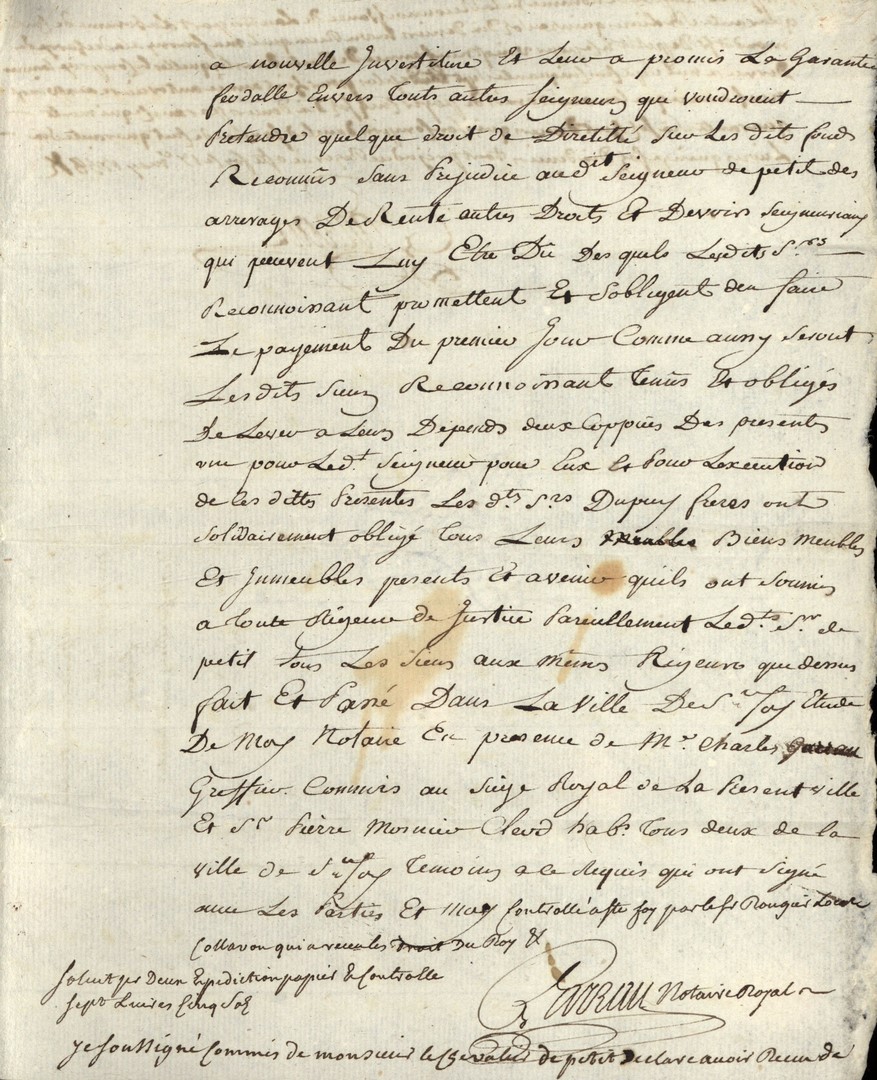 a nouvelle Investiture Et Leur a promis La Garantie
feodalle Envers touts autres Seigneurs qui voudroient
Pretendre quelque droit de Diretitté sur Les dits fonds
Reconnus sans Prejudice audit Seigneur de petit des
arrerages De Rente autres Droits Et Devoirs Seigneuriaux
qui peuvent Luy Etre Du Des quels Lesdits Srs
Reconnoissant promettent Et sobligent den faire
Le payement Du premier Jour Comme aussy seront
Lesdits sieurs Reconnoissant tenus Et obligés
De Lever a Leurs Depends deux Coppies Des presentes
une pour Ledt Seigneur pour Eux Et Pour Lexecution
de ces dittes Presentes Les dts Srs Dupuy freres ont
solidairement obligé tous Leurs Biens meubles
Et Immeubles presents Et avenir quils ont soumis
a toute Rigeur de Justice Pareillement Ledts Sr de
petit tous Les siens aux mêmes Rigeurs que dessus
fait Et Passé Dans La Ville De Ste foy Etude
De Moy Notaire En presence de Mr Charles
Greffier Commis au siege Royal de La Present ville
Et Sr Pierre Mosnier Clerd habt tous deux de la
ville de Ste foy temoins a ce Requis qui ont signé
avec Les Parties Et Moy Controllé aste foy par le sr Rouquie
Collavon qui a receu les droit Du Roy &
solvit per Deux Expediction papier & Controlle
sept Livres Cinq Sol
Notaire Royal
Je soussigné Commis de monsieur le Chevalier de petit Declare avoir Receu de